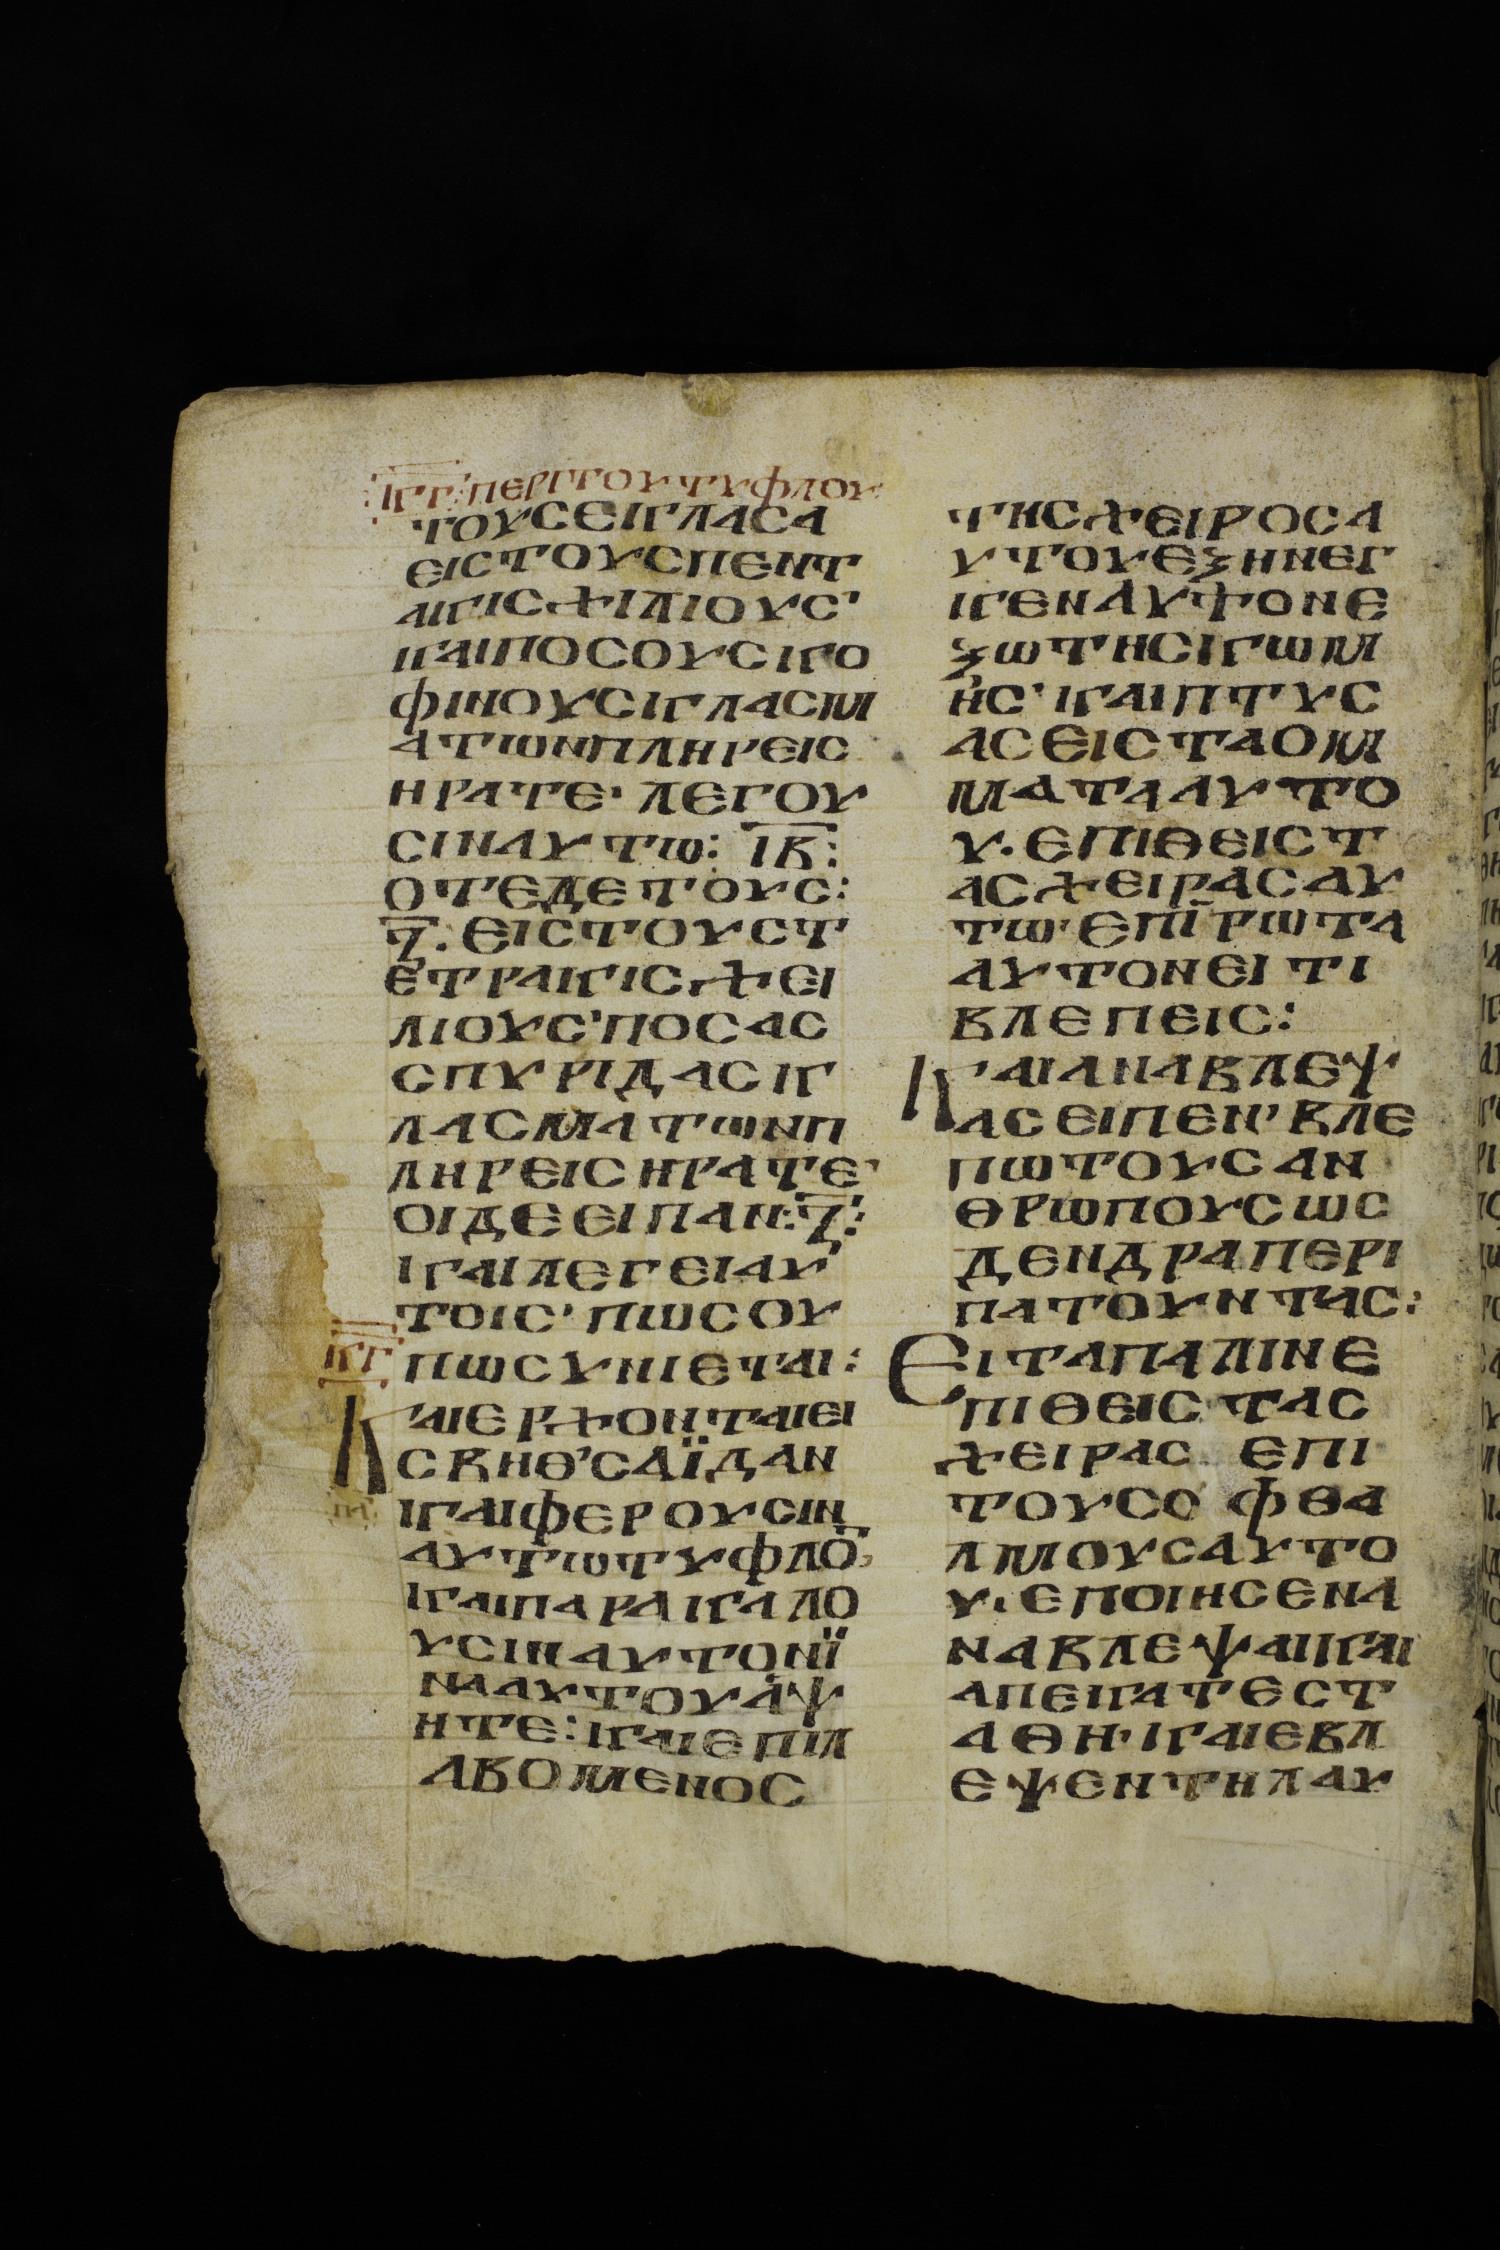 ΚΓ: ΠΕΡΙ ΤΟΥ ΤΥΦΛΟΥ
ΤΟΥΣ ΕΙΚΛΑΣΑ
ΕΙΣ ΤΟΥΣ ΠΕΝΤ
ΑΚΙΣΧΙΛΙΟΥΣ·
ΚΑΙ ΠΟΣΟΥΣ ΚΟ
ΦΙΝΟΥΣ ΚΛΑΣΜ
ΑΤΩΝ ΠΛΗΡΕΙΣ
ΗΡΑΤΕ· ΛΕΓΟΥ
ΣΙΝ ΑΥΤΩ: ΙΒ:
ΟΤΕ ΔΕ ΤΟΥΣ:
Ζ. ΕΙΣ ΤΟΥΣ Τ
ΕΤΡΑΚΙΣΧΕΙ
ΛΙΟΥΣ· ΠΟΣΑΣ
ΣΠΥΡΙΔΑΣ Κ
ΛΑΣΜΑΤΩΝ Π
ΛΗΡΕΙΣ ΗΡΑΤΕ·
ΟΙ ΔΕ ΕΙΠΑΝ: Ζ:
ΚΑΙ ΛΕΓΕΙ ΑΥ
ΤΟΙΣ· ΠΩΣ ΟΥ
ΚΓ ΠΩ ΣΥΝΙΕΤΑΙ:
ΚΑΙ ΕΡΧΟΝΤΑΙ ΕΙ
Σ ΒΗΘ'ΣΑΪΔΑΝ
ΚΑΙ ΦΕΡΟΥΣΙΝ
ΑΥΤΩ ΤΥΦΛΟ̅,
ΚΑΙ ΠΑΡΑΚΑΛΟ
ΥΣΙΝ ΑΥΤΟΝ Ϊ
ΝΑ ΑΥΤΟΥ ΑΨ
ΗΤΕ: ΚΑΙ ΕΠΙΛ
ΑΒΟΜΕΝΟΣ
ΤΗΣ ΧΕΙΡΟΣ Α
ΥΤΟΥ ΕΞΗΝΕΓ
ΚΕΝ ΑΥΤΟΝ Ε
ΞΩ ΤΗΣ ΚΩΜ
ΗΣ· ΚΑΙ ΠΤΥΣ
ΑΣ ΕΙΣ ΤΑ ΟΜ
ΜΑΤΑ ΑΥΤΟ
Υ. ΕΠΙΘΕΙΣ Τ
ΑΣ ΧΕΙΡΑΣ ΑΥ
ΤΩ· ΕΠΙΡΩΤΑ
ΑΥΤΟΝ ΕΙ ΤΙ
ΒΛΕΠΕΙΣ:
ΚΑΙ ΑΝΑΒΛΕΨ
ΑΣ ΕΙΠΕΝ· ΒΛΕ
ΠΩ ΤΟΥΣ ΑΝ
ΘΡΩΠΟΥΣ ΩΣ
ΔΕΝΔΡΑ ΠΕΡΙ
ΠΑΤΟΥΝΤΑΣ:
ΕΙΤΑ ΠΑΛΙΝ Ε
ΠΙΘΕΙΣ ΤΑΣ
ΧΕΙΡΑΣ ΕΠΙ
ΤΟΥΣ ΟΦΘΑ
ΛΜΟΥΣ ΑΥΤΟ
Υ. ΕΠΟΙΗΣΕΝ Α
ΝΑΒΛΕΨΑΙ ΚΑΙ
ΑΠΕΚΑΤΕΣΤ
ΑΘΗ· ΚΑΙ ΕΒΛ
ΕΨΕΝ ΤΗΛΑΥ